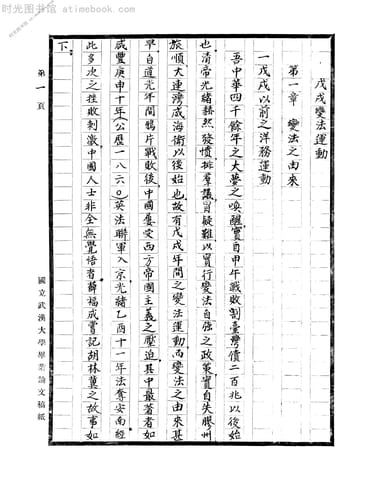 时光图书馆 - atimebook.com
戊戌變法運動
第一章 變法之由來
一戊戌以前之洋務運動
吾中華四千餘年之大夢之喚醒實自甲午戰敗割臺灣償二百兆以後始
也清帝光緒赫然發憤排羣議冒疑難以實行變法自強之政策實自失膠州
旅順大連灣威海衛以後始也故有戊戌年間之變法運動而變法之由來甚
早自道光年間鴉片戰敗後中國屢受西方帝國主義之壓迫其中最著者如
咸豐庚申十年(公歷一八六〇)英法聯軍入京光緒乙酉十一年法奪安南經
此多次之挫敗刺激中國人士非全無覺悟者薛福成嘗記胡林翼之故事如
下
第一頁
國立武漢大學畢業論文稿紙